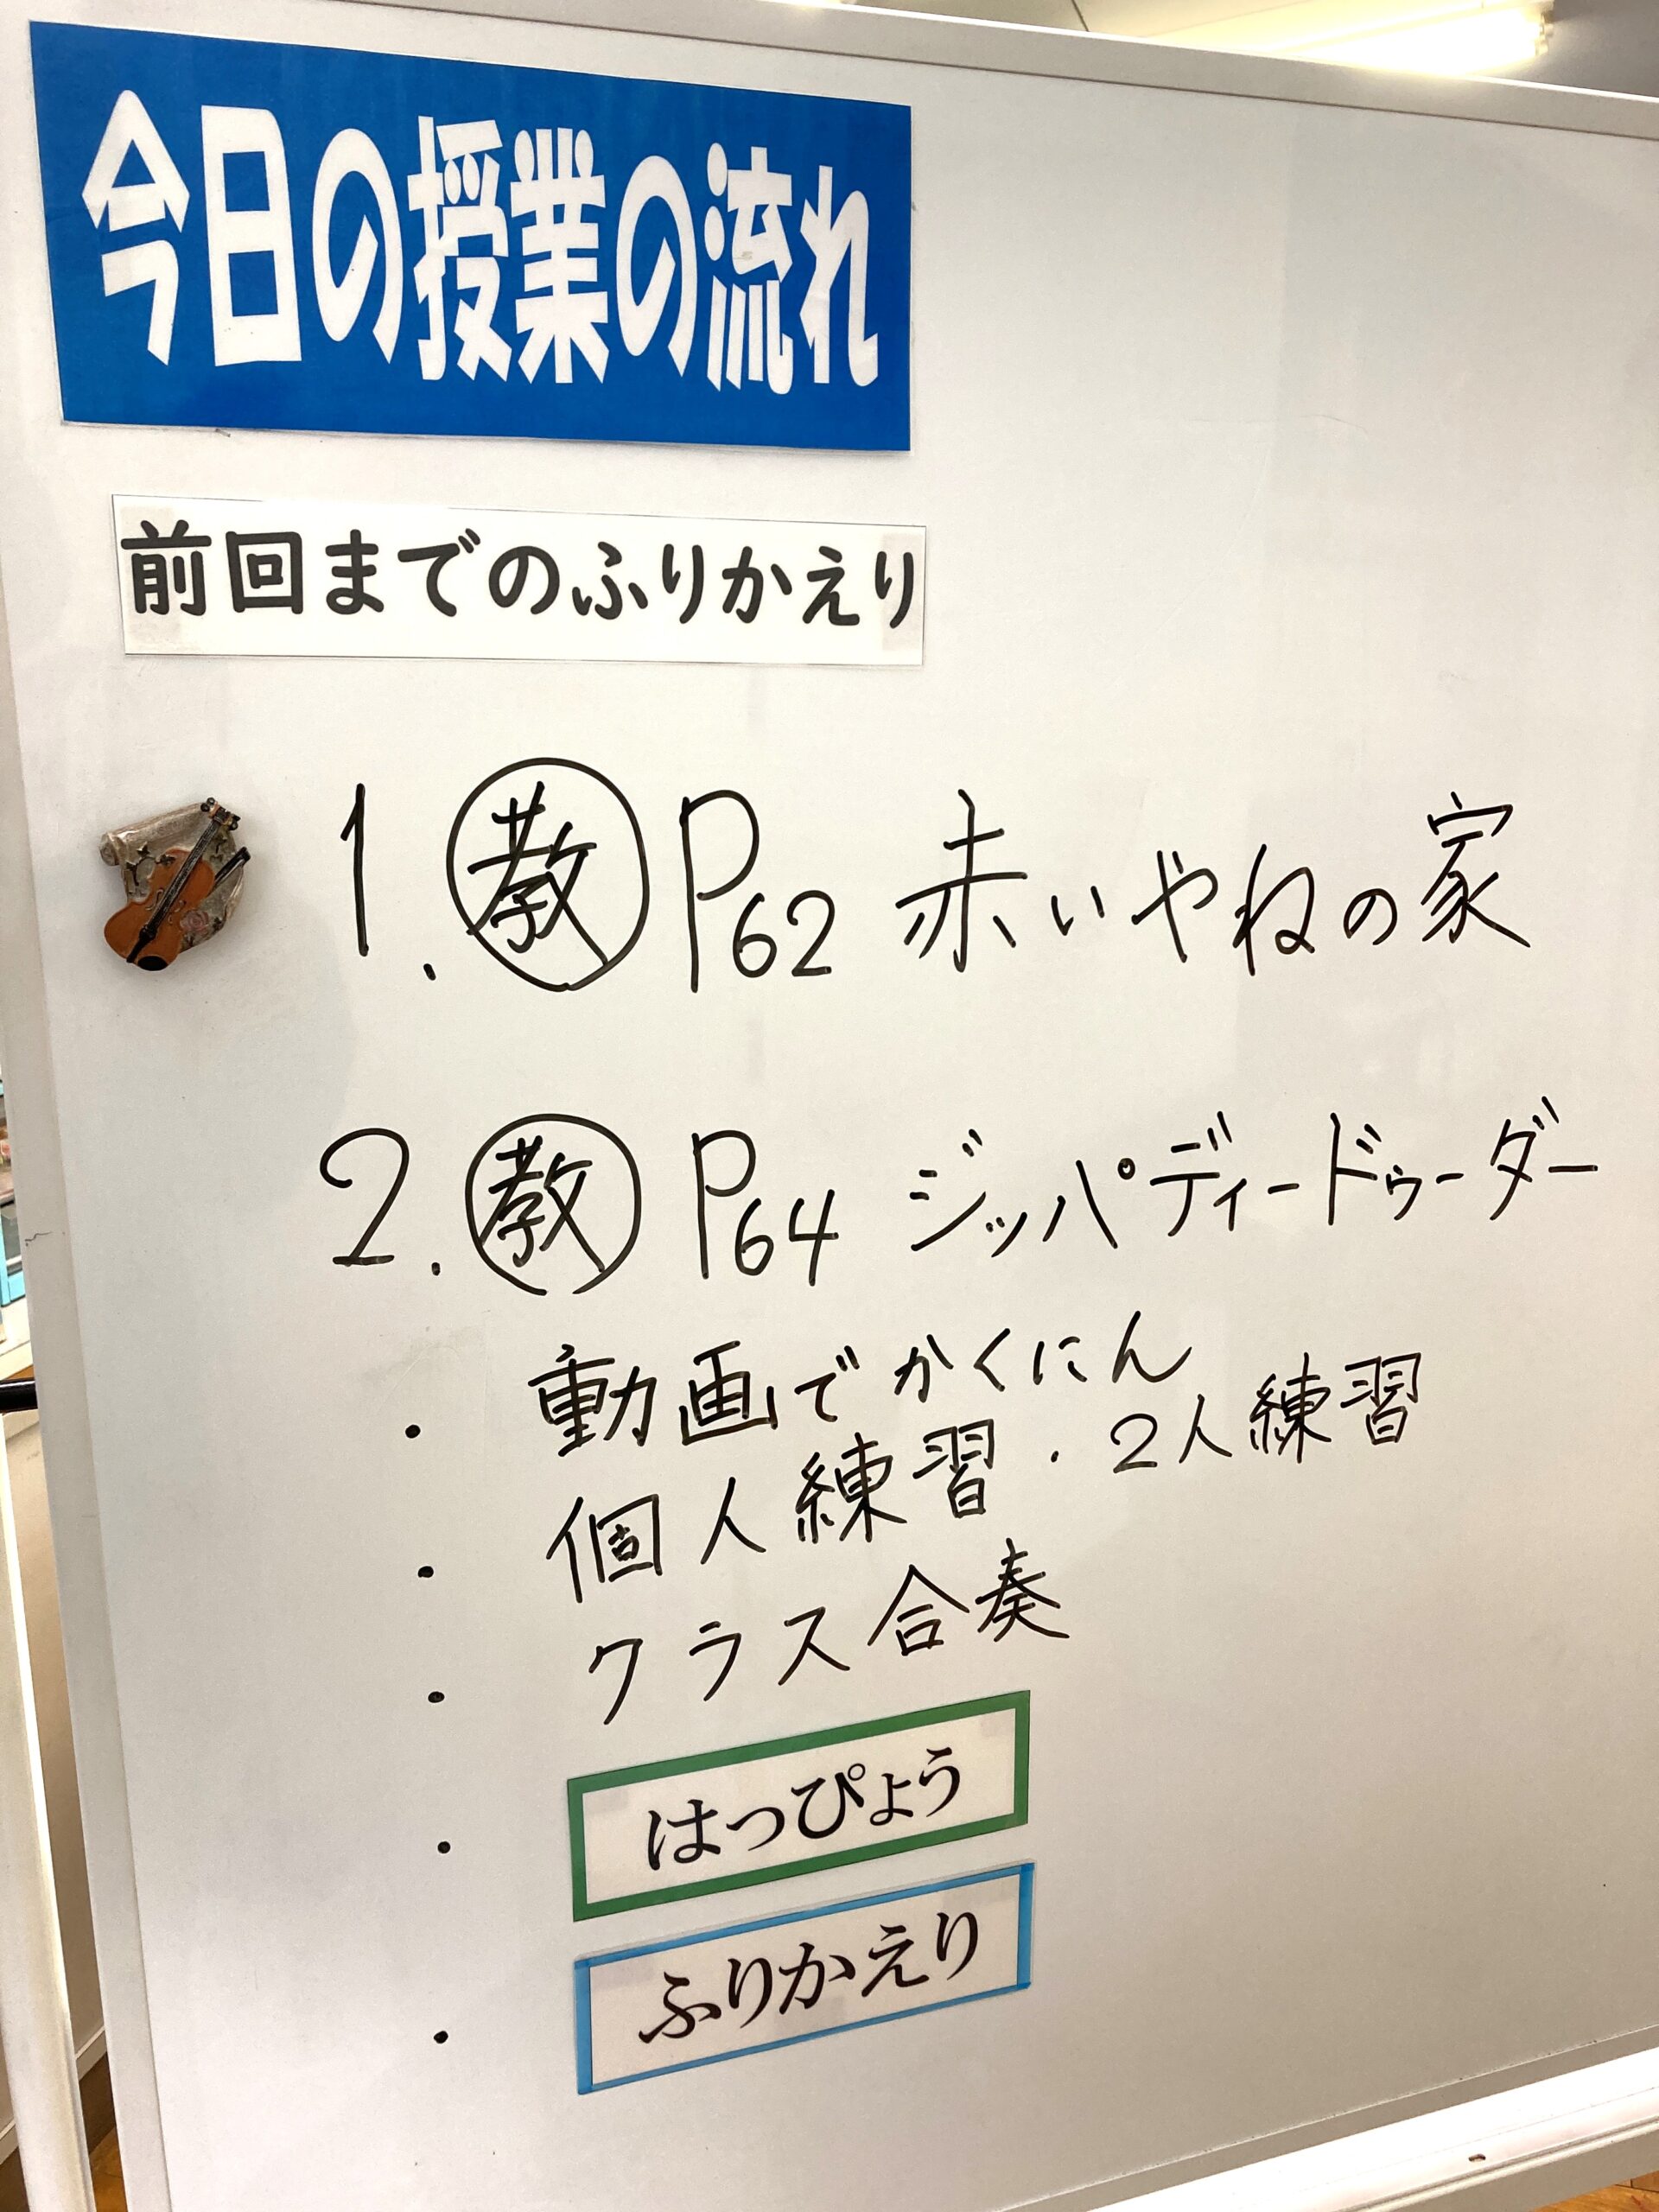 今日の授業の流れ
前回までのふりかえり
1. 教 P62 赤いやねの家
2. 教 P64 ジッパディードゥーダー
・ 動画でかくにん
・ 個人練習・2人練習
・ クラス合奏
・ はっぴょう
・ ふりかえり